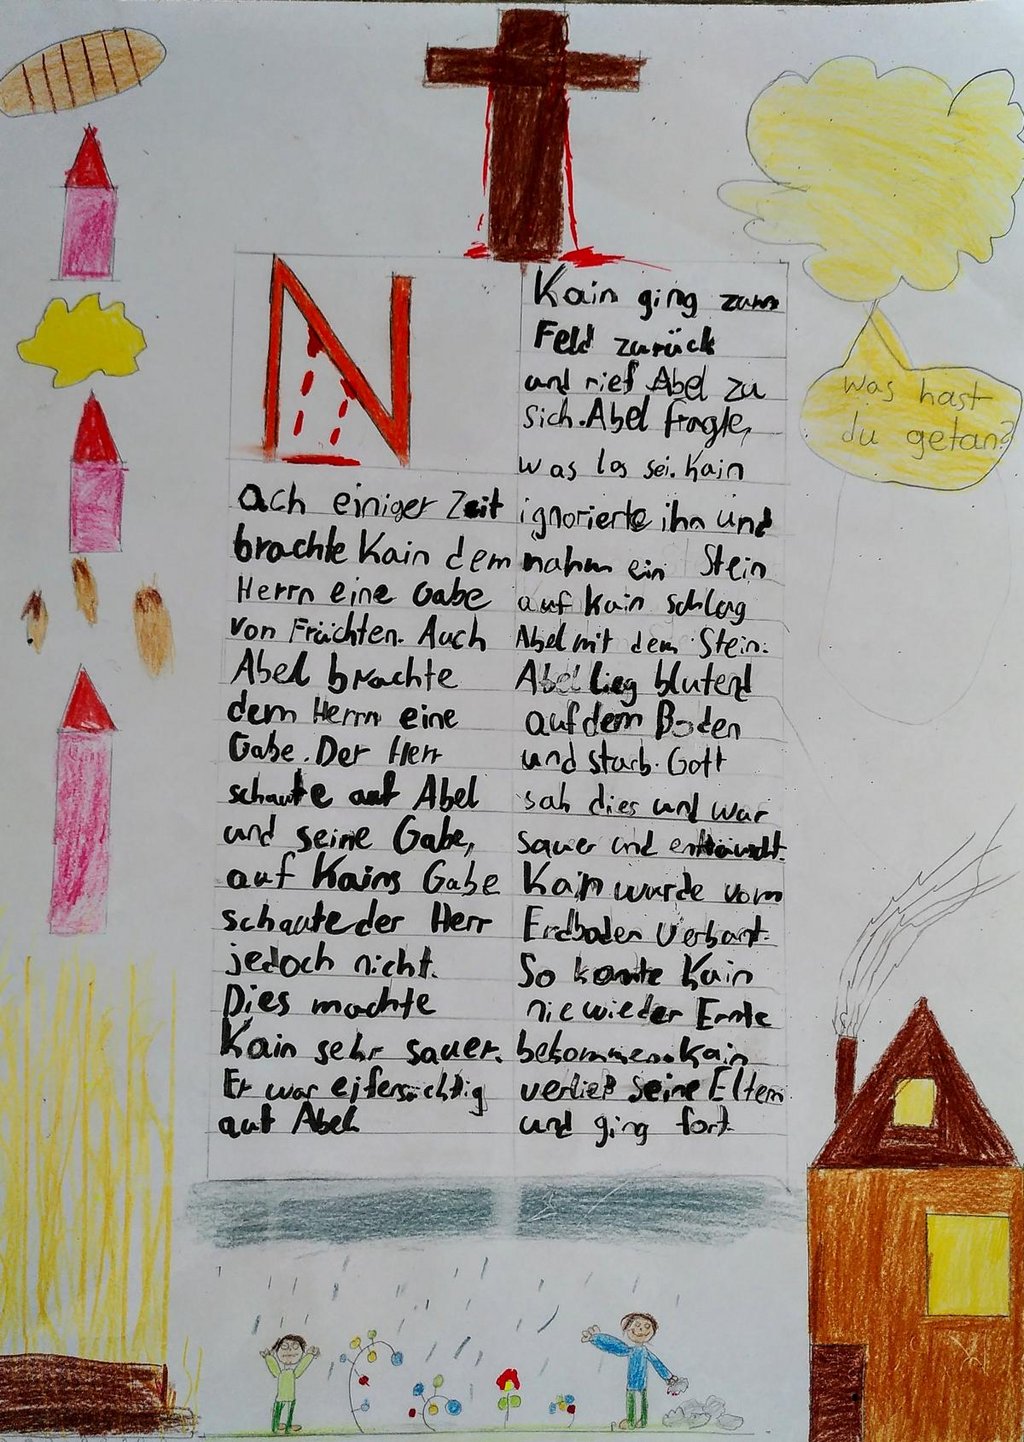 N
ach einiger Zeit
brachte Kain dem
Herrn eine Gabe
von Früchten. Auch
Abel brachte
dem Herrn eine
Gabe. Der Herr
schaute auf Abel
und seine Gabe,
auf Kains Gabe
schaute der Herr
jedoch nicht.
Dies machte
Kain sehr sauer.
Er war eifersüchtig
auf Abel
Kain ging zum
Feld zurück
und rief Abel zu
sich. Abel fragte,
was los sei. Kain
ignorierte ihn und
nahm ein Stein
auf Kain schlog
Abel mit dem Stein.
Abel lieg blutend
auf dem Boden
und starb. Gott
sah dies und war
sauer und enttäuscht.
Kain wurde vom
Erdboden verbant.
So konnte Kain
nie wieder Ernte
bekommen. Kain
verließ seine Eltern
und ging fort.
Was hast
du getan?